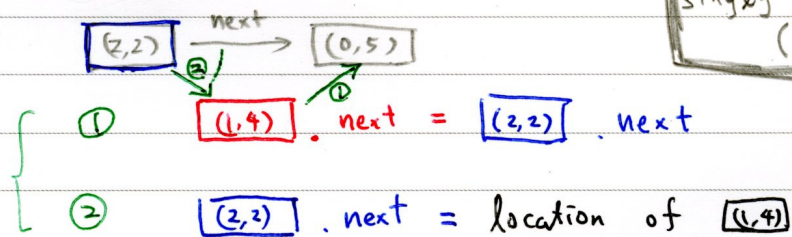 next
(2,2) (0,5)
② ①
① (1,4) . next = (2,2) . next
② (2,2) . next = location of (1,4)